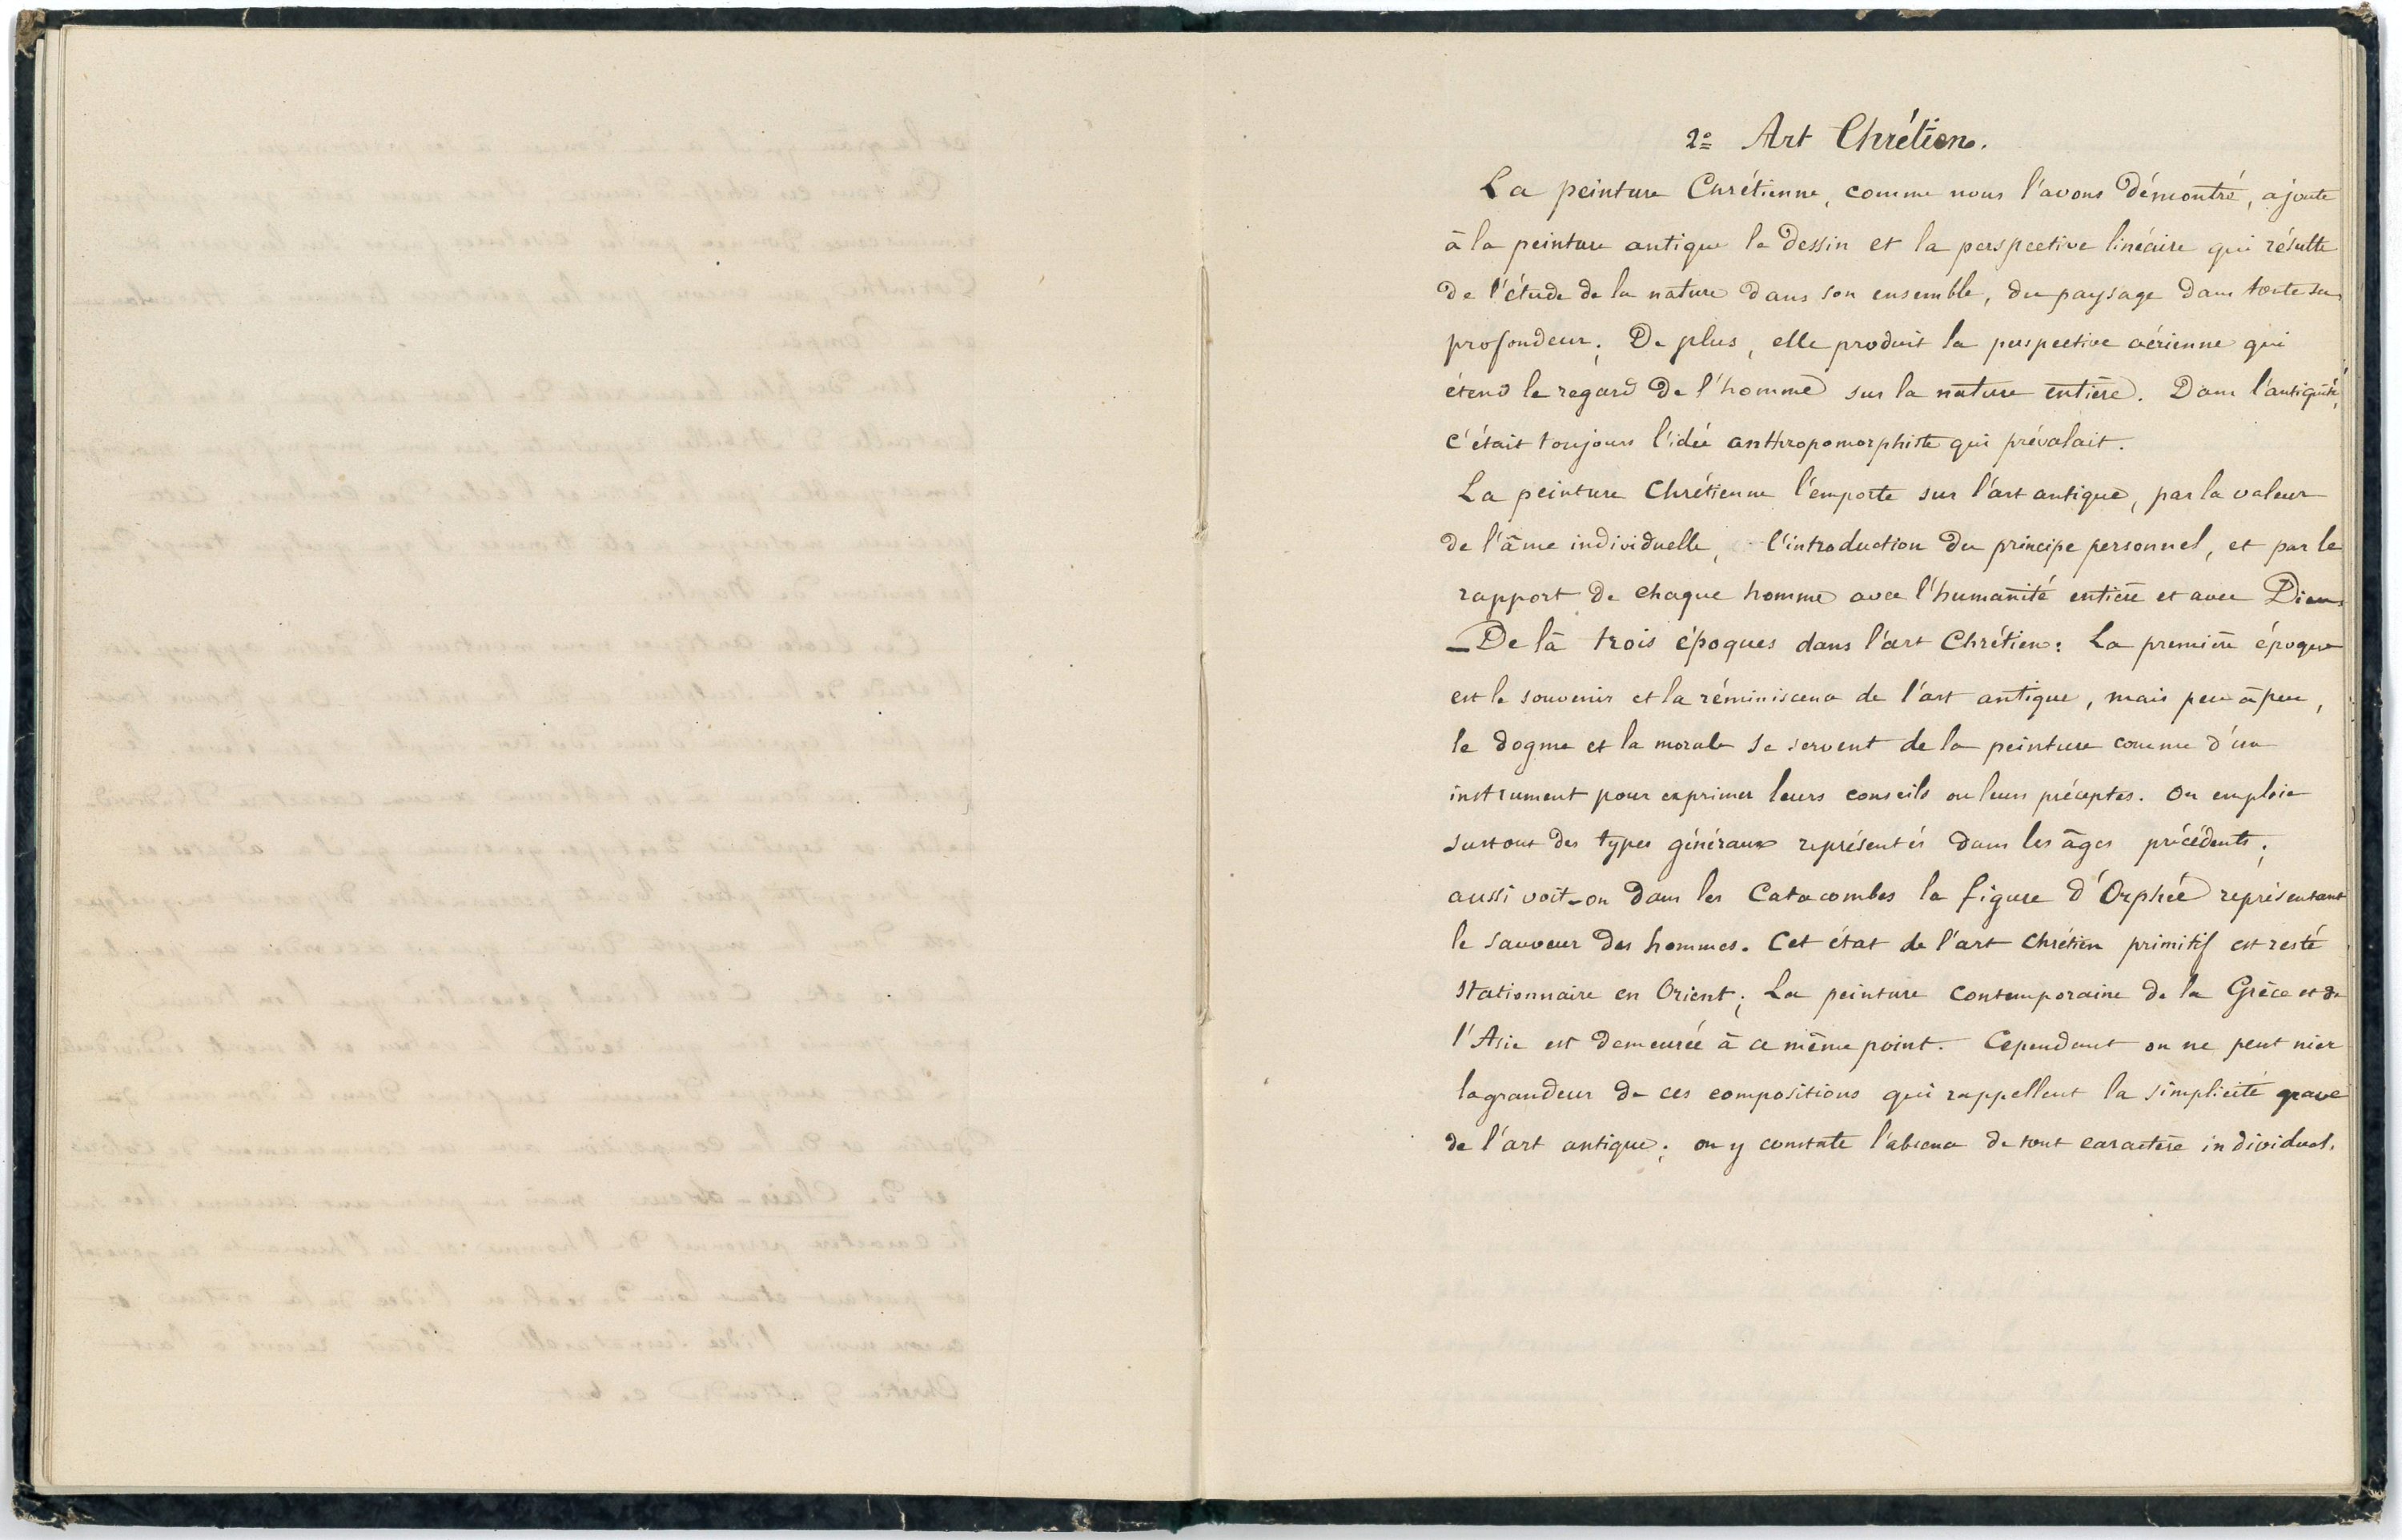 2º Art Chrétien.
La peinture Chrétienne, comme nous l'avons démontré, ajoute
à la peinture antique le dessin et la perspective linéaire qui résulte
de l'étude de la nature dans son ensemble, du paysage dans toute sa
profondeur; De plus, elle produit la perspective aérienne qui
étend le regard de l'homme sur la nature entière. Dans l'antiquité,
c'était toujours l'idée anthropomorphiste qui prévalait.
La peinture Chrétienne l'emporte sur l'art antique, par la valeur
de l'âme individuelle, l'introduction du principe personnel, et par le
rapport de chaque homme avec l'humanité entière et avec Dieu.
_De là trois époques dans l'art Chrétien: La première époque
est le souvenir et la réminiscence de l'art antique, mais peu à peu,
le dogme et la morale se servent de la peinture comme d'un
instrument pour exprimer leurs conseils ou leurs préceptes. On emploie
surtout des types généraux représentés dans les âges précédents;
aussi voit-on dans les Catacombes la figure d'Orphée représentant
le sauveur des hommes. Cet état de l'art Chrétien primitif est resté
stationnaire en Orient; La peinture contemporaine de la Grèce et de
l'Asie est demeurée à ce même point. Cependant on ne peut nier
la grandeur de ces compositions qui rappellent la simplicité grave
de l'art antique; on y constate l'absence de tout caractère individuel.